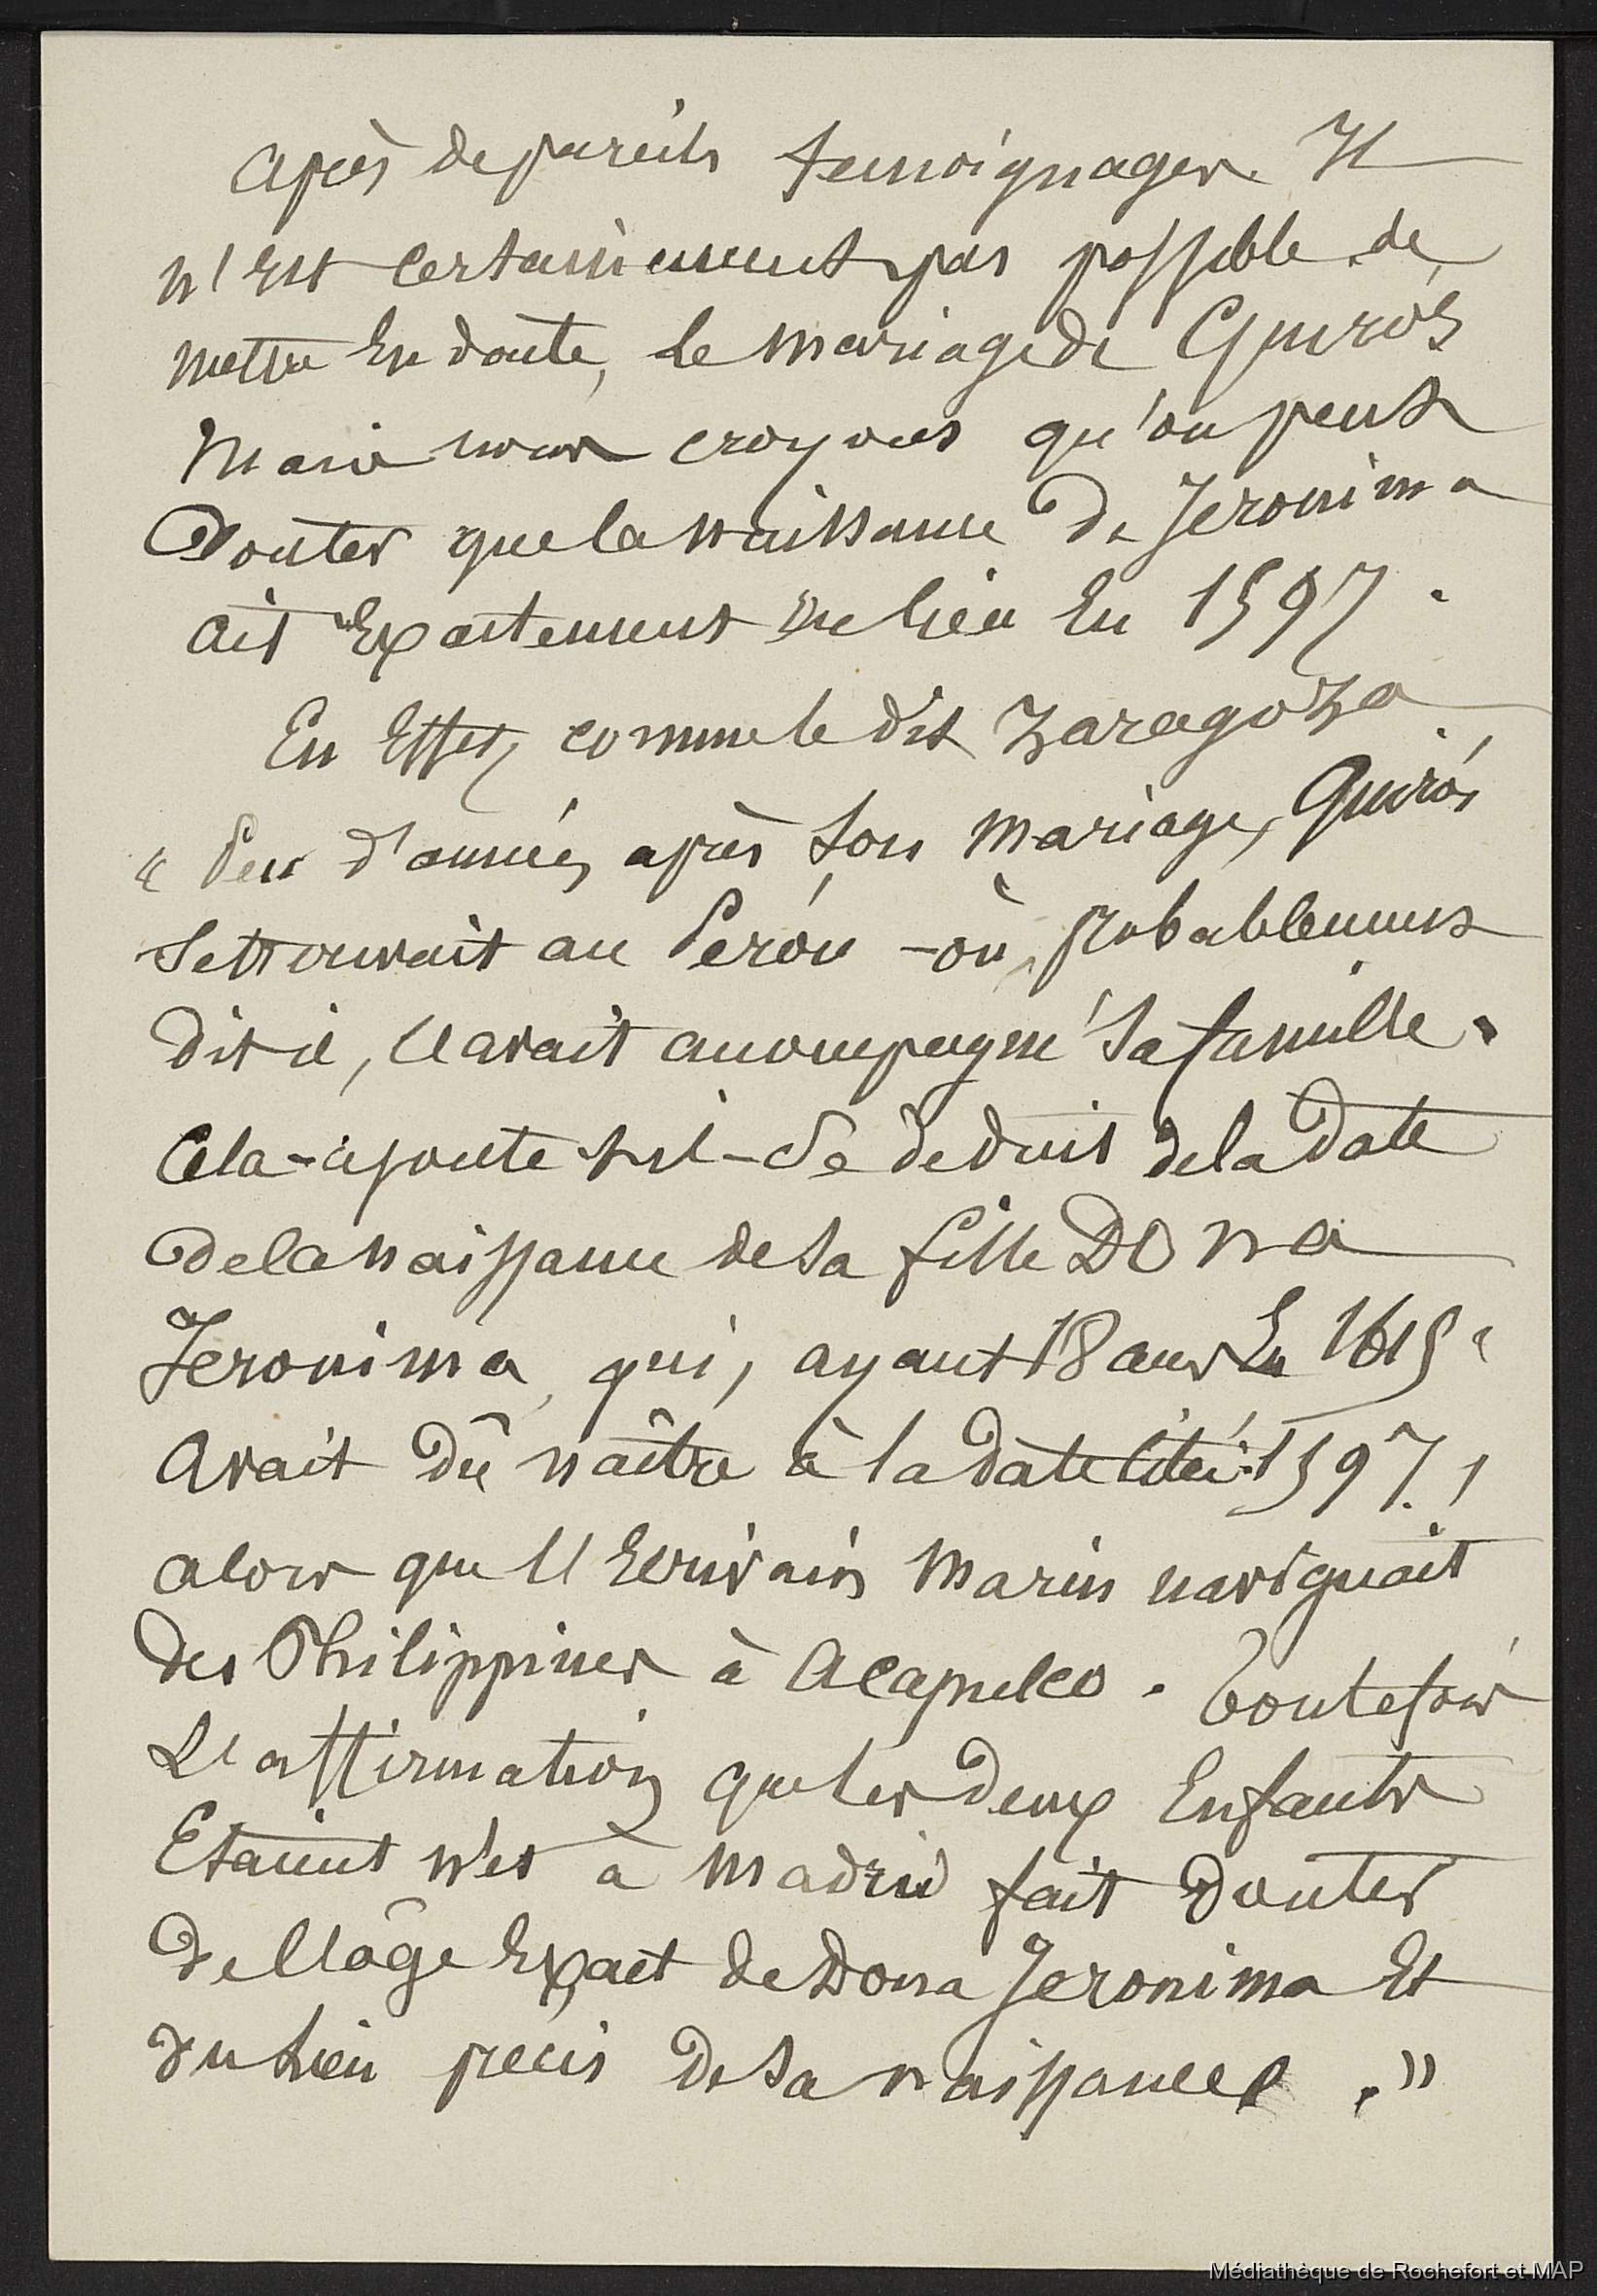 Après de pareils temoignages. Il
n'est certainement pas possible de
mettre en doute, le mariage de Quirós
Mais nous croyons qu'on peut
Douter que la naissance de Jeronima
ait exactement eu lieu en 1597.
En effet, comme le dit Zaragoza.
« Peu d'années après son mariage, Quirós
se trouvait au Pérou - où probablement
dit-il, il avait accompagné sa famille.
Cela - ajoute-t-il - se deduit de la date
de la naissance de sa fille Dona
Jeronima, qui, ayant 18 ans en 1615
Avait dû naître à la date citée : 1597,
alors que l'Ecrivain Marin naviguait
des Philippines à Acapulco. Toutefois
L'affirmation que les deux enfants
Etaient nés à Madrid fait douter
de l'âge exact de Dona Jeronima et
du lieu précis de sa naissance. »
Médiathèque de Rochefort et MAP